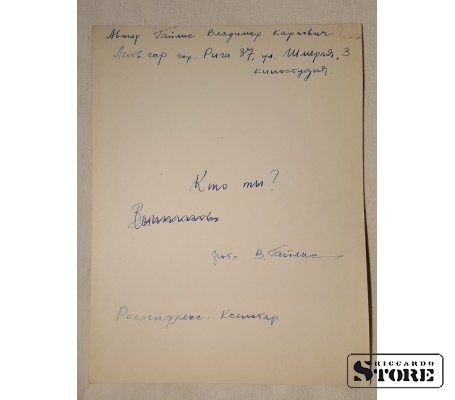 Автор Гайлис Владимир Карлович
Латв.ССР гор. Рига 87, ул. Шмерля, 3
киностудия
Кто ты?
фото В. Гайлис
Роллейфлекс. Ксенотар
RICCARDO
STORE